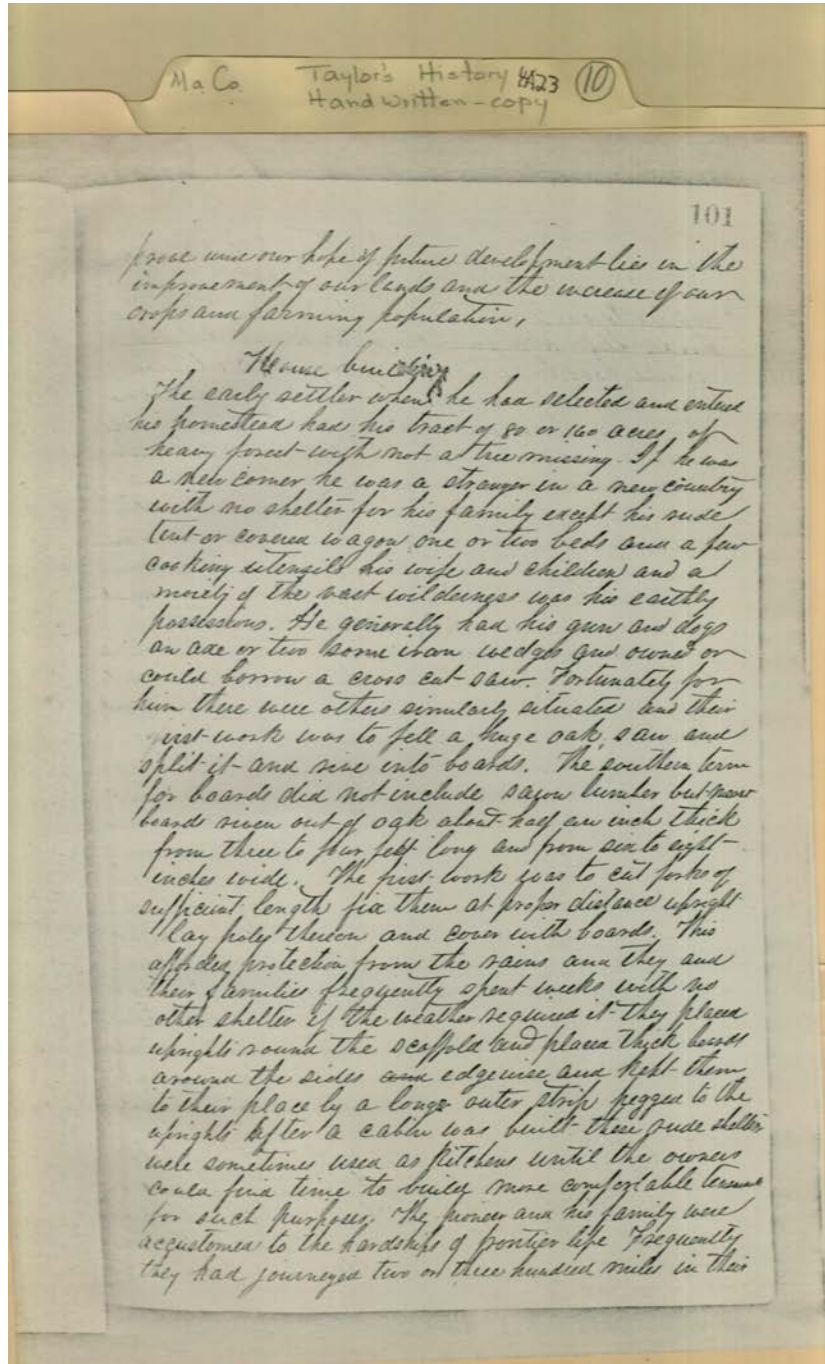 Ma. Co. Taylor's History 4A23 10
Handwritten-copy
101
prove our hope of future development lies in the
improvement of our lands and the increase of our
crops and farming population,
House building
The early settler when he had selected and entered
his homestead had his tract of 80 or 160 acres of
heavy forest with not a tree missing. If he was
a new comer he was a stranger in a new country
with no shelter for his family except his rude
tent or covered wagon one or two beds and a few
cooking utensils his wife and children and a
moiety of the vast wilderness was his earthly
possessions. He generally had his gun and dogs
an axe or two some iron wedges and owned or
could borrow a cross cut saw. Fortunately for
him there were others similarly situated and their
first work was to fell a huge oak, saw and
split it and rive into boards. The southern term
for boards did not include sawn lumber but
boards riven out of oak about half an inch thick
from three to four feet long and from six to eight
inches wide. The first work was to cut forks of
sufficient length fix them at proper distance upright
lay poles thereon and cover with boards. This
afforded protection from the rains and they and
their families frequently spent weeks with no
other shelter if the weather required it they placed
uprights round the scaffold and placed thick boards
around the sides and edgewise and kept them
to their place by a long outer strip pegged to the
uprights After a cabin was built these rude shelters
were sometimes used as kitchens until the owners
could find time to build more comfortable
for such purposes. The pioneer and his family were
accustomed to the hardships of frontier life Frequently
they had journeyed two or three hundred miles in their